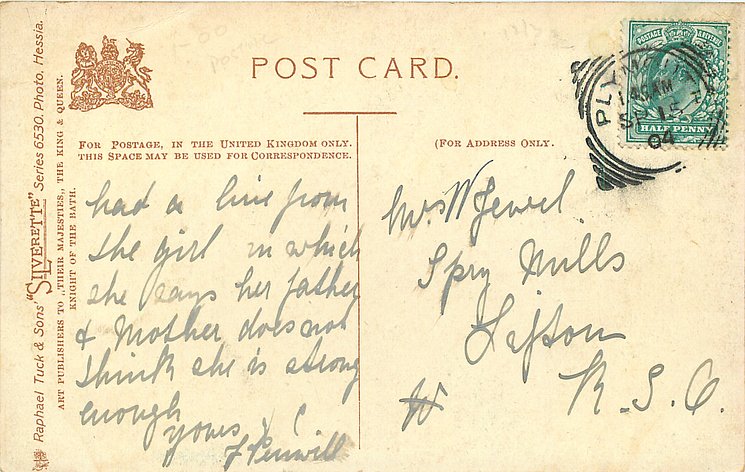 POST CARD.
FOR POSTAGE, IN THE UNITED KINGDOM ONLY.
THIS SPACE MAY BE USED FOR CORRESPONDENCE.
(FOR ADDRESS ONLY.
Raphael Tuck & Sons' "SILVERETTE" Series 6530. Photo. Hessia.
ART PUBLISHERS TO „THEIR MAJESTIES„ THE KING & QUEEN.
KNIGHT OF THE BATH.
POSTAGE REVENUE
HALF PENNY
PLYM
SP 15
04
had a line from
the girl in which
she says her father
& Mother does not
think she is strong
enough
yours
F Penwill
Mrs W Jewel
Spry Mills
Lifton
R.S.O.
W